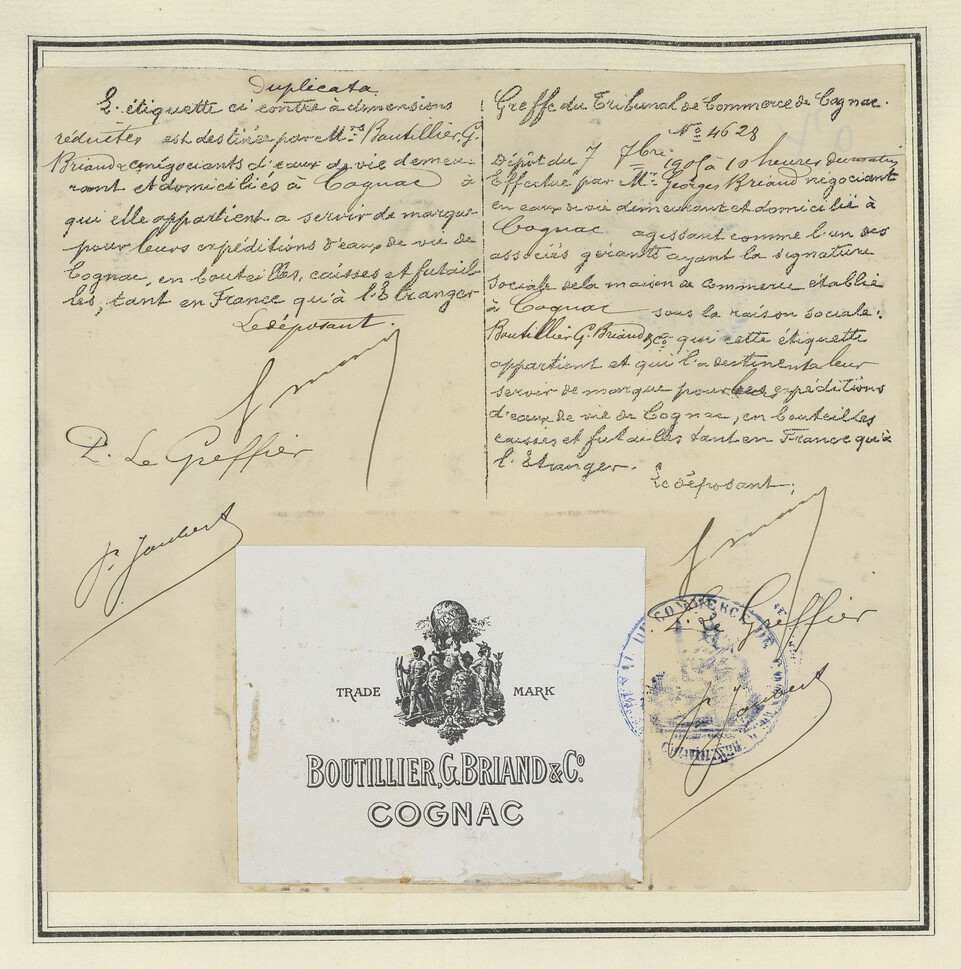 Duplicata
L'étiquette ci contre à dimensions
réduites est destinée par Mrs Boutillier, G.
Briand & Co négociants d'eaux de vie demeu-
rant et domiciliés à Cognac à
qui elle appartient a servir de marque
pour leurs expéditions d'eaux de vie de
Cognac, en bouteilles, caisses et futail-
les, tant en France qu'à l'Étranger
Le déposant.
P. Le Greffier
P. Joubert
Greffe du Tribunal de Commerce de Cognac.
No 4628
Dépôt du 7 7bre à 10 heures du matin
Effectué par Mr Georges Briand négociant
en eaux de vie demeurant et domicilié à
Cognac agissant comme l'un des
associés gérants ayant la signature
sociale de la maison de commerce établie
à Cognac sous la raison sociale:
Boutillier G. Briand & Co qui cette étiquette
appartient et qui l'a destinent a leur
servir de marque pour leurs expéditions
d'eaux de vie de Cognac, en bouteilles
caisses et futailles tant en France qu'à
l'Étranger.
Le déposant,
P. Le Greffier
P. Joubert
COMMERCE DE
TRADE MARK
BOUTILLIER, G. BRIAND & Co
COGNAC